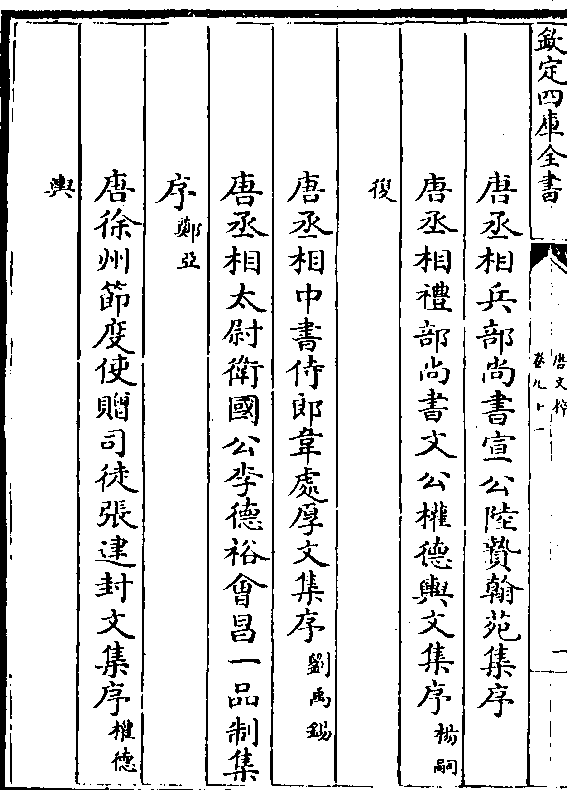 欽定四庫全書
唐文粹
卷九十一
一
唐丞相兵部尚書宣公陸贄翰苑集序
唐丞相禮部尚書文公權德輿文集序楊嗣
復
唐丞相中書侍郎韋處厚文集序劉禹錫
唐丞相太尉衛國公李德裕會昌一品制集
序鄭亞
唐徐州節度使贈司徒張建封文集序權德
輿